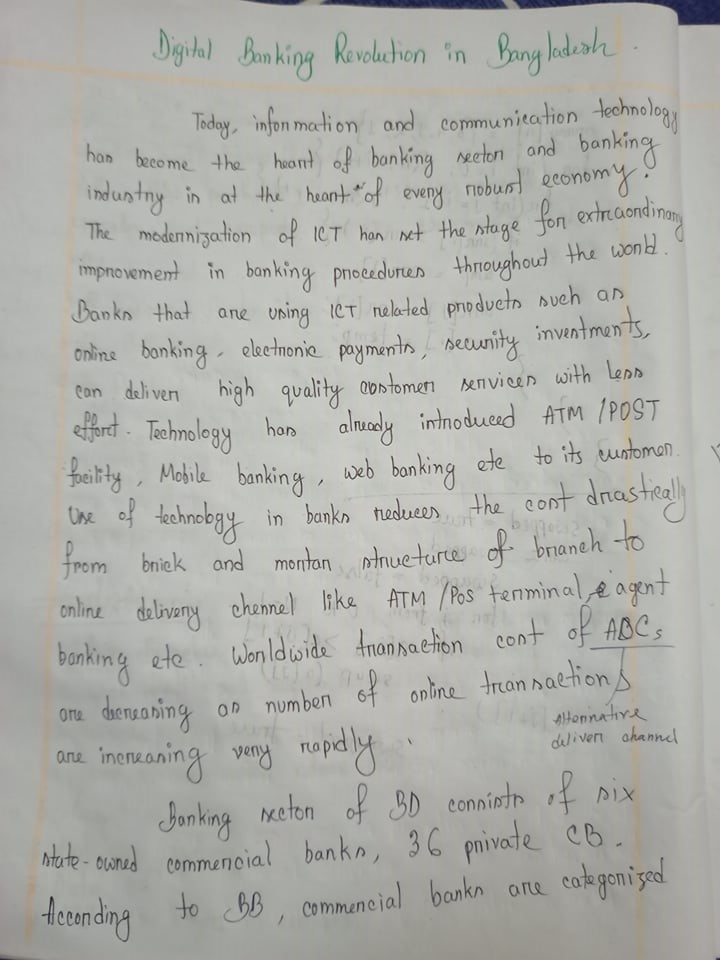 Digital Banking Revolution in Bangladesh.
Today, information and communication technology
has become the heart of banking sector and banking
industry is at the heart of every robust economy.
The modernization of ICT has set the stage for extraordinary
improvement in banking procedures throughout the world.
Banks that are using ICT related products such as
online banking, electronic payments, security investments,
can deliver high quality customer services with less
effort. Technology has already introduced ATM/POST
facility, Mobile banking, web banking etc to its customer.
Use of technology in banks reduces the cost drastically
from brick and mortar structure of branch to
online delivery chennel like ATM/Pos terminal, e agent
banking etc. Worldwide transaction cost of ADCs
are decreasing as number of online transactions
alternative
deliver channel
are increasing very rapidly.
Banking sector of BD consists of six
state-owned commercial banks, 36 private CB.
According to BB, commercial banks are categorized